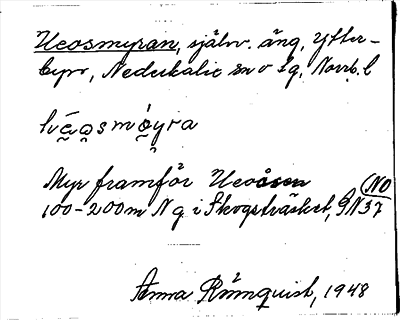 Heosmyran, självr. äng, Ytter-
byn, Nederkalix sn o tg, Norrb. l
Myr framför Heoåsen (NO
100-200m N g i Skogsträsket, PN37
Anna Rönnquist, 1948